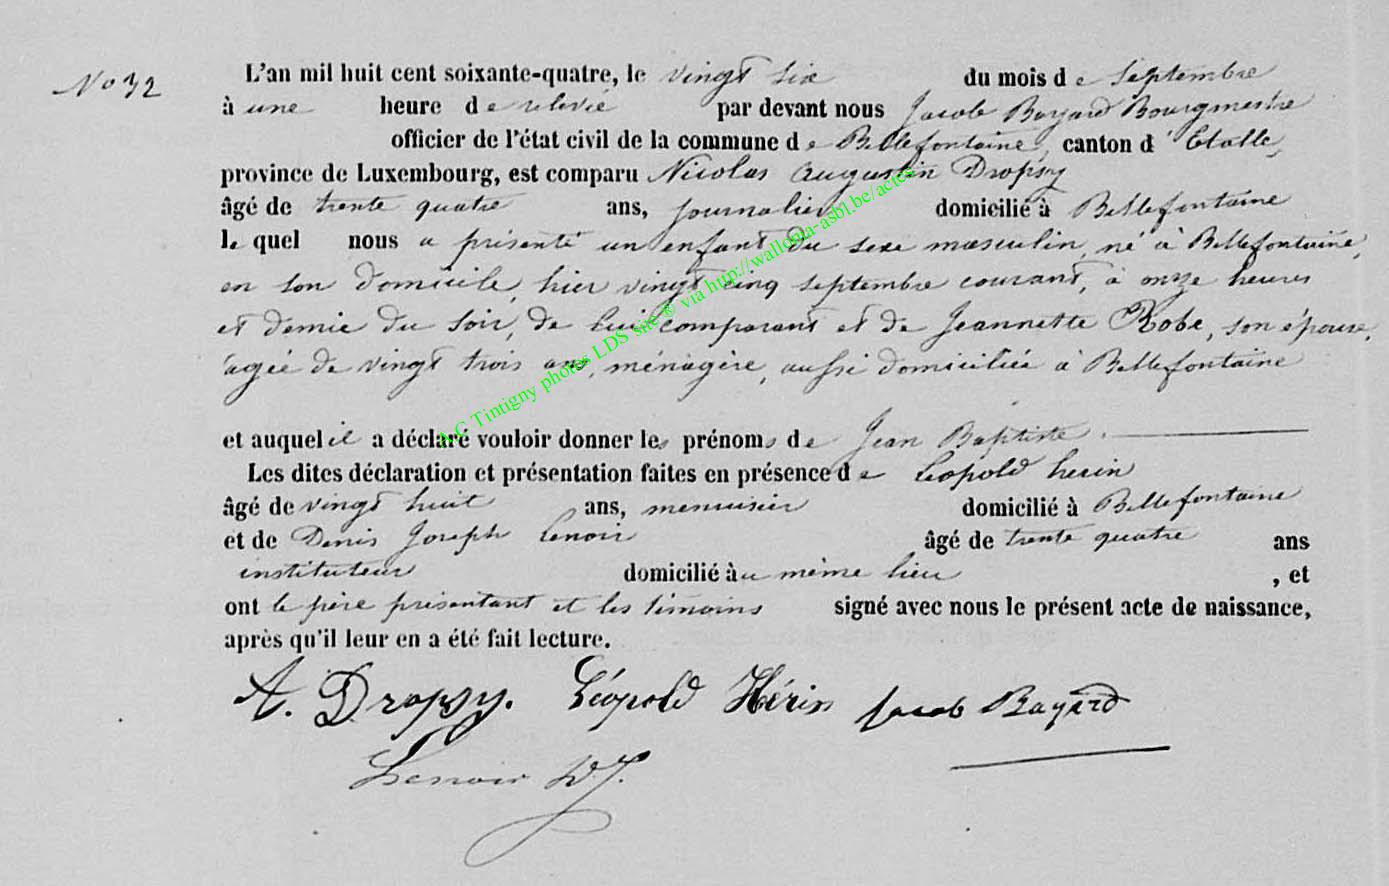 No 32
L'an mil huit cent soixante-quatre, le vingt six du mois de Septembre
à une heure de relevée par devant nous Jacob Bayard Bourgmestre
officier de l'état civil de la commune de Bellefontaine, canton d'Etalle,
province de Luxembourg, est comparu Nicolas Augustin Dropsy
âgé de trente quatre ans, journalier domicilié à Bellefontaine
lequel nous a présenté un enfant du sexe masculin, né à Bellefontaine,
en son domicile, hier vingt cinq septembre courant, à onze heures
et demie du soir, de lui comparant et de Jeannette Robe, son épouse,
âgée de vingt trois ans, ménagère, aussi domiciliée à Bellefontaine
et auquel il a déclaré vouloir donner les prénoms de Jean Baptiste.
Les dites déclaration et présentation faites en présence de Léopold herin
âgé de vingt huit ans, menuisier domicilié à Bellefontaine
et de Denis Joseph Lenoir âgé de trente quatre ans
instituteur domicilié au même lieu, et
ont le père présentant et les témoins signé avec nous le présent acte de naissance,
après qu'il leur en a été fait lecture.
A. Dropsy. Léopold Hérin Jacob Bayard
Lenoir D. J.
A.C Tintigny photos LDS site® via http://wallonia-asbl.be/actes